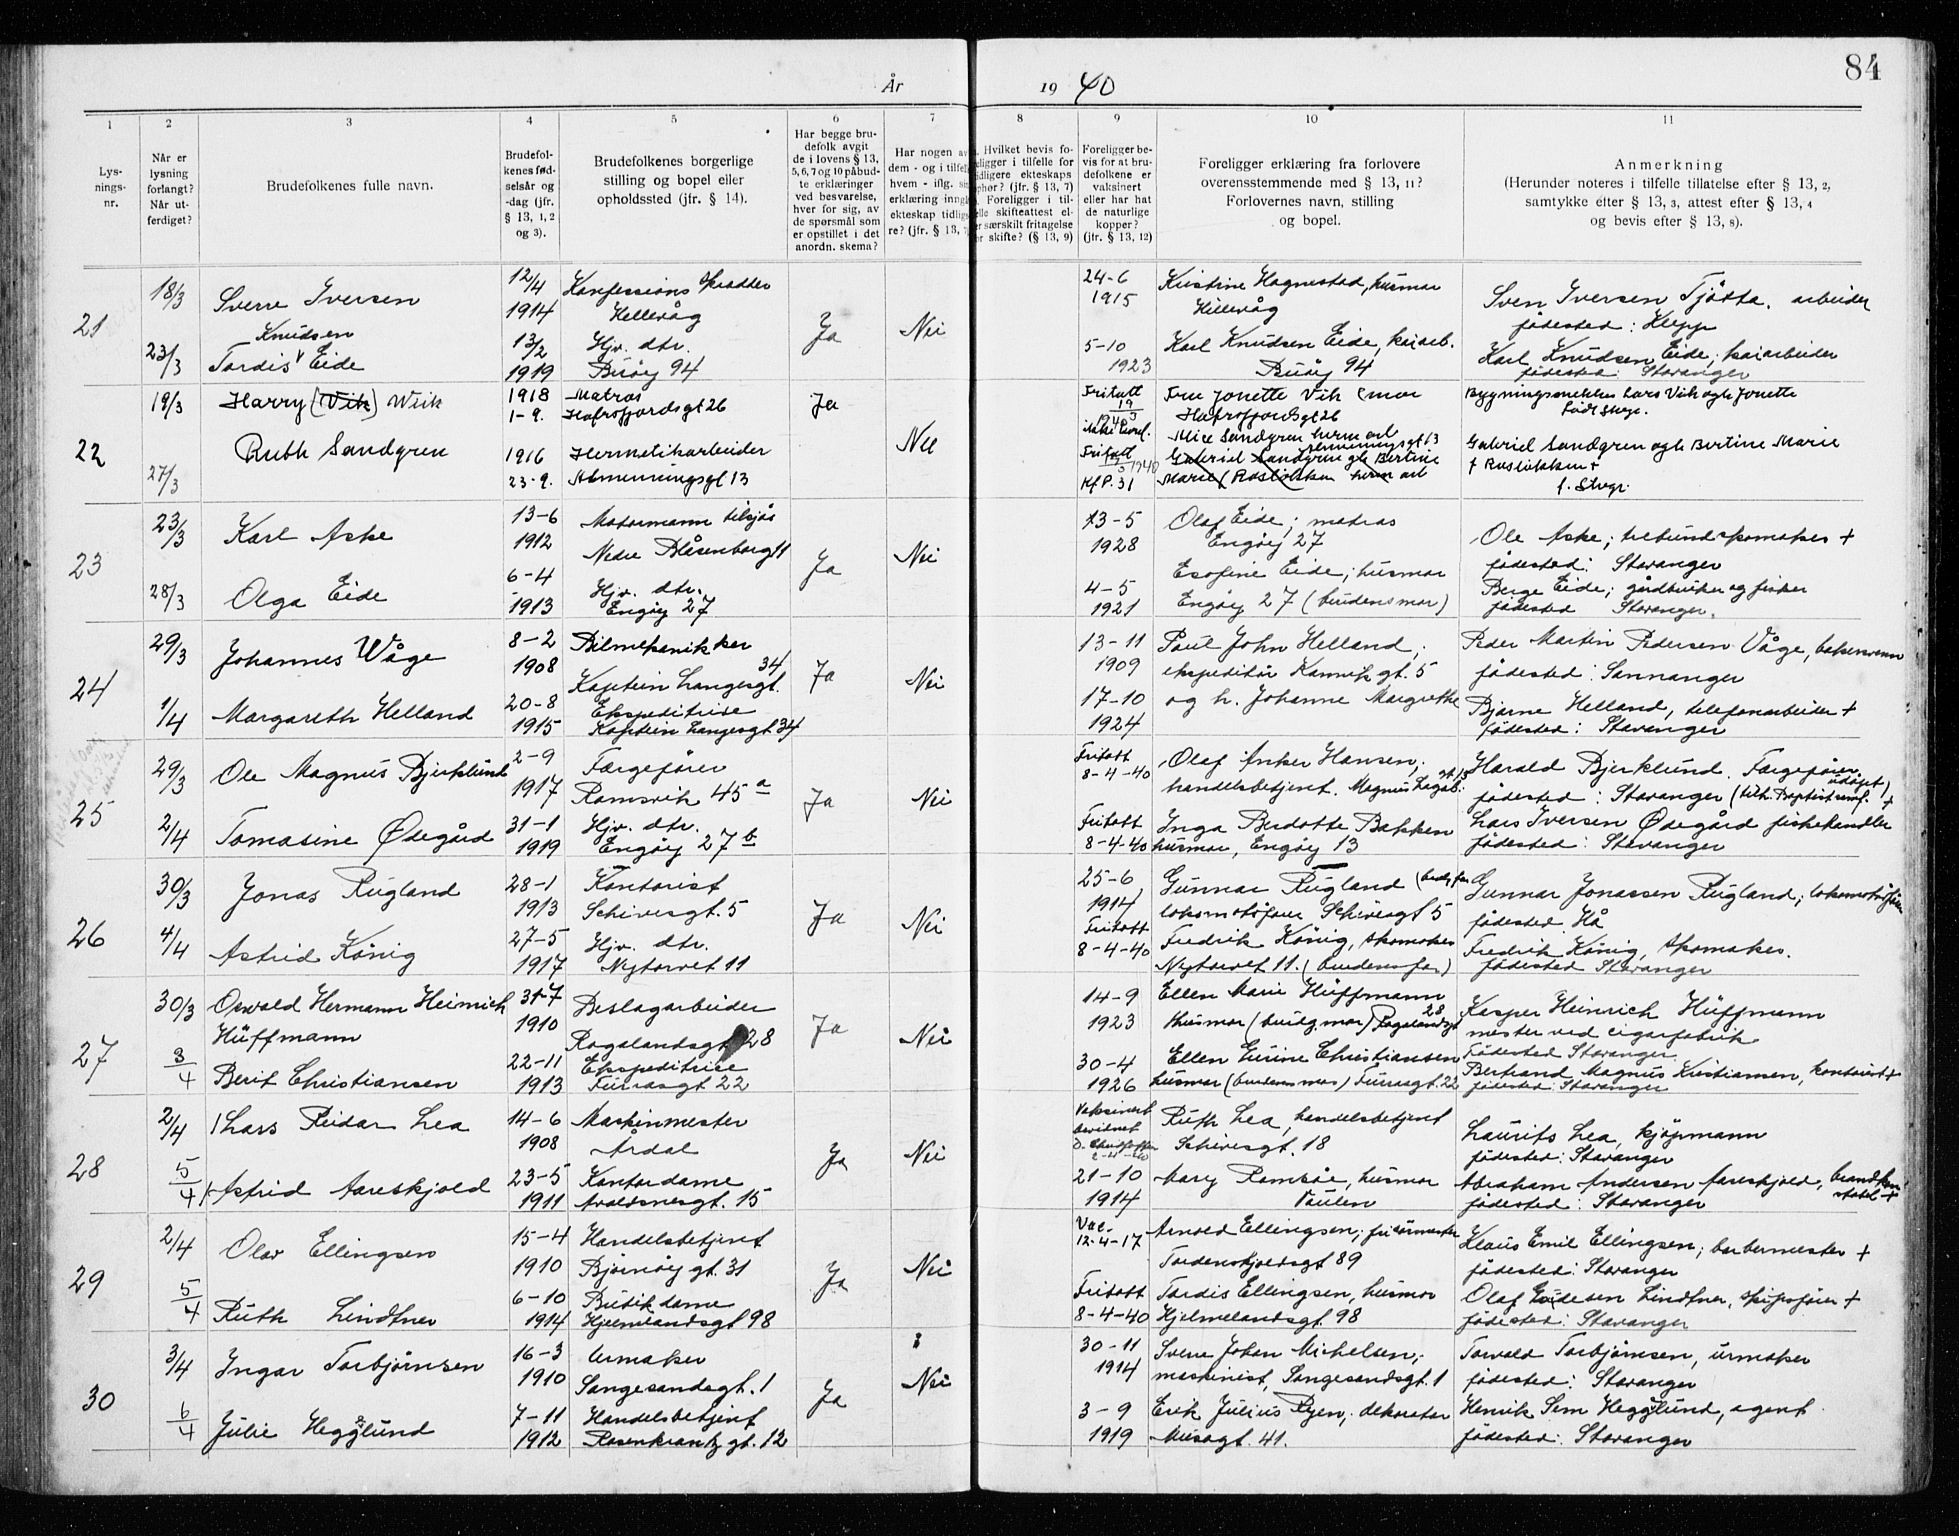 84
År 19 40
1 2 3 4 5 6 7 8 9 10 11
Lys-
nings-
nr.
Når er
lysning
forlangt?
Når ut-
ferdiget?
Brudefolkenes fulle navn.
Brudefol-
kenes fød-
selsår og
-dag (jfr.
§ 13, 1, 2
og 3).
Brudefolkenes borgerlige
stilling og bopel eller
opholdssted (jfr. § 14).
Har begge bru-
defolk avgit
de i lovens § 13,
5, 6, 7 og 10 påbud-
te erklæringer
ved besvarelse,
hver for sig, av
de spørsmål som
er opstillet i det
anordn. skema?
Har nogen av
dem - og i tilfelle
hvem - iflg.
erklæring inngått
ekteskap tidlige-
re? (jfr. § 13,
Hvilket bevis fo-
religger i tilfelle for
tidligere ekteskaps
ophør? (jfr. § 13, 7)
Foreligger i til-
felle skifteattest el-
ler særskilt fritagelse
for skifte? (§ 13, 9)
Foreligger be-
vis for at bru-
defolkene er
vaksinert
eller har hat
de naturlige
kopper?
(jfr. § 13, 12)
Foreligger erklæring fra forlovere
overensstemmende med § 13, 11?
Forlovernes navn, stilling
og bopel.
Anmerkning
(Herunder noteres i tilfelle tillatelse efter § 13, 2,
samtykke efter § 13, 3, attest efter § 13, 4
og bevis efter § 13, 8).
21
18/3
23/3
Sverre Iversen
Knudsen
Tordis Eide
12/4
1914
13/2
1919
Konfessions skredder
Hillevåg
Hjv. dtr.
Buøy 94
Ja
Nei
24-6
1915
5-10
1923
Kristine Hagnestad, husmor
Hillevåg
Karl Knudsen Eide, kaiarb.
Buøy 94
Sven Iversen Tjötta. arbeider
födested: Klepp
Karl Knudsen Eide; kaiarbeider
födested: Stavanger
22
19/3
27/3
Harry (Vik) Wiik
Ruth Sandgren
1918
1-9.
1916
23-9.
Matros
Hafrsfjordsgt 26
Hermetikarbeider
Almenningsgt 13
Ja
Nei
Fritatt
19/3
1940
Fritatt
1940
Kf P. 31
Fru Jonette Vik (mor
Hafrsfjordsgt 26
Alice Sandgren herm arb
Almenningsgt 13
Gabriel Sandgren gh Bertine
Marie (Rosliokken herm arb
Bygningssnekker Lars Vik og h Jonette
født Stvgr.
Gabriel Sandgren og h Bertine Marie
f Rosliokken +
f. Stvgr.
23
23/3
28/3
Karl Aske
Olga Eide
13-6
1912
6-4
1913
Motormann tilsjøs
Nedre Blåsenborg 11
Hjv. dtr.
Engøy 27
Ja
Nei
13-5
1928
4-5
1921
Olaf Eide; matros
Engøy 27
Esofine Eide; husmor
Engøy 27 (brudens mor)
Ole Aske; trebundskomaker +
födested: Stavanger
Berge Eide; gårdbruker og fisker
födested Stavanger.
24
29/3
1/4
Johannes Våge
Margareth Helland
8-2
1908
20-8
1915
Bilmekanikker
34
Kaptein Langesgt.
Ekspeditrise
Kaptein Langesgt 34
Ja
Nei
13-11
1909
17-10
1924
Paul John Helland.
ekspeditör Kannikgt. 5
og h. Johanne Margrethe
Peder Martin Pedersen Våge, bakersvenn
födested: Samnanger
Bjarne Helland, telefonarbeider +
födested: Stavanger
25
29/3
2/4
Ole Magnus Bjerklund
Tomasine Ødegård
2-9
1917
31-1
1919
Færgefører
Ramsvik 45 a
Hjv. dtr.
Engøy 27 b
Ja
Nei
Fritatt
8-4-40
Fritatt
8-4-40
Olaf Anker Hansen;
handelsbetjent. Magnus Lagab. gt. 15
Inga Berdotte Bakken
husmor, Engøy 13
Harald Bjerklund. Færgefører
födested: Stavanger (tilh. Baptistsamf. udöpt)
Lars Iversen Ødegård fiskehandler +
födested: Stavanger
26
30/3
4/4
Jonas Rugland
Astrid König
28-1
1913
27-5
1917
Kontorist
Schivesgt. 5
Hjv. dtr.
Nytorvet 11
Ja
Nei
25-6
1914
Fritatt
8-4-40
Gunnar Rugland (brudg. far
lokomotivfører Schivesgt 5
Fredrik König, skomaker
Nytorvet 11. (brudens far)
Gunnar Jonassen Rugland; lokomotivfører
födested Hå
Fredrik König, skomaker.
födested Stavanger
27
30/3
3/4
Oswald Hermann Heinrich
Hüffmann
Berit Christiansen
31-7
1910
22-11
1913
Beslagarbeider
Rogalandsgt 28
Ekspeditrise
Furrasgt 22
Ja
Nei
14-9
1923
30-4
1926
Ellen Marie Hüffmann
28
Husmor (brudg. mor) Rogalandsgt
Ellen Eurine Christiansen
husmor (brudens mor) Furrasgt. 22
Kasper Heinrich Hüffmann
mester ved cigarfabrik
Födested Stavanger
Bertrand Magnus Kristiansen, kontorist +
födested: Stavanger
28
2/4
5/4
Lars Reidar Lea
Astrid Aareskjold
14-6
1908
23-5
1911
Maskinmester
Årdal
Kontordame
Avaldsnesgt. 15
Ja
Nei
Vaksinert
bevidnet
2-4-40
21-10
1914
Ruth Lea, handelsbetjent
Schivesgt. 18
Mary Ramsøe, husmor
Paulen
Laurits Lea, kjöpmann
födested: Stavanger
Abraham Andersen Aareskjold, brandkon-
stabel +
födested: Stavanger
29
2/4
5/4
Olav Ellingsen
Ruth Lindtner
15-4
1910
6-10
1914
Handelsbetjent
Bjørnøy gt. 31
Butikdame
Hjelmelandsgt 98
Ja
Nei
Vac.
12-4-17
Fritatt
8-4-40
Arnold Ellingsen; frisørmester
Tordenskjoldsgt 89
Tordis Ellingsen, husmor
Hjelmelandsgt. 98
Klaus Emil Ellingsen; barbermester +
födested: Stavanger
Olaf Eidesen Lindtner, skipsfører +
födested: Stavanger
30
3/4
6/4
Ingar Torbjørnsen
Julie Hegglund
16-3
1910
7-11
1912
Urmaker
Sangesandsgt. 1
Handelsbetjent
Rosenkrantz gt. 12
Ja
Nei
30-11
1914
3-9
1919
Sverre Johan Michelsen;
maskinist, Sangesandsgt. 1
Erik Julius Ryen; dekoratør
Musøgt. 41.
Torvald Torbjørnsen, urmaker
födested: Stavanger
Henrik Sem Hegglund, agent
födested: Stavanger